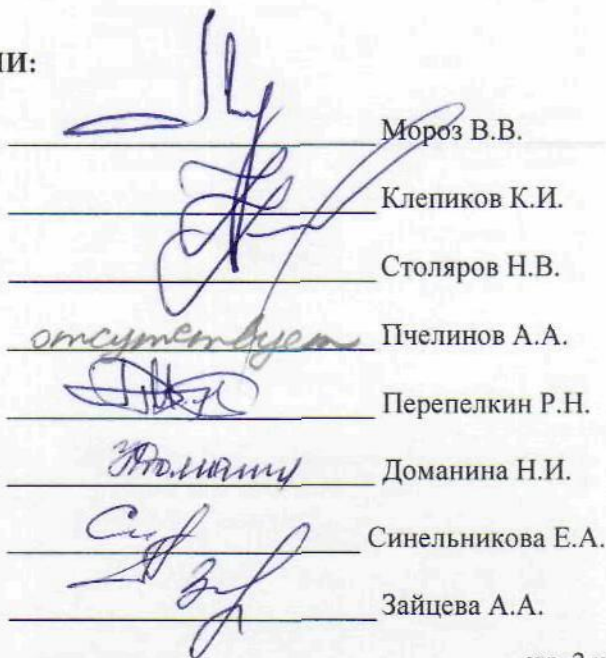 ИИ:
Мороз В.В.
Клепиков К.И.
Столяров Н.В.
отсутствует Пчелинов А.А.
Перепелкин Р.Н.
Доманина Н.И.
Синельникова Е.А.
Зайцева А.А.